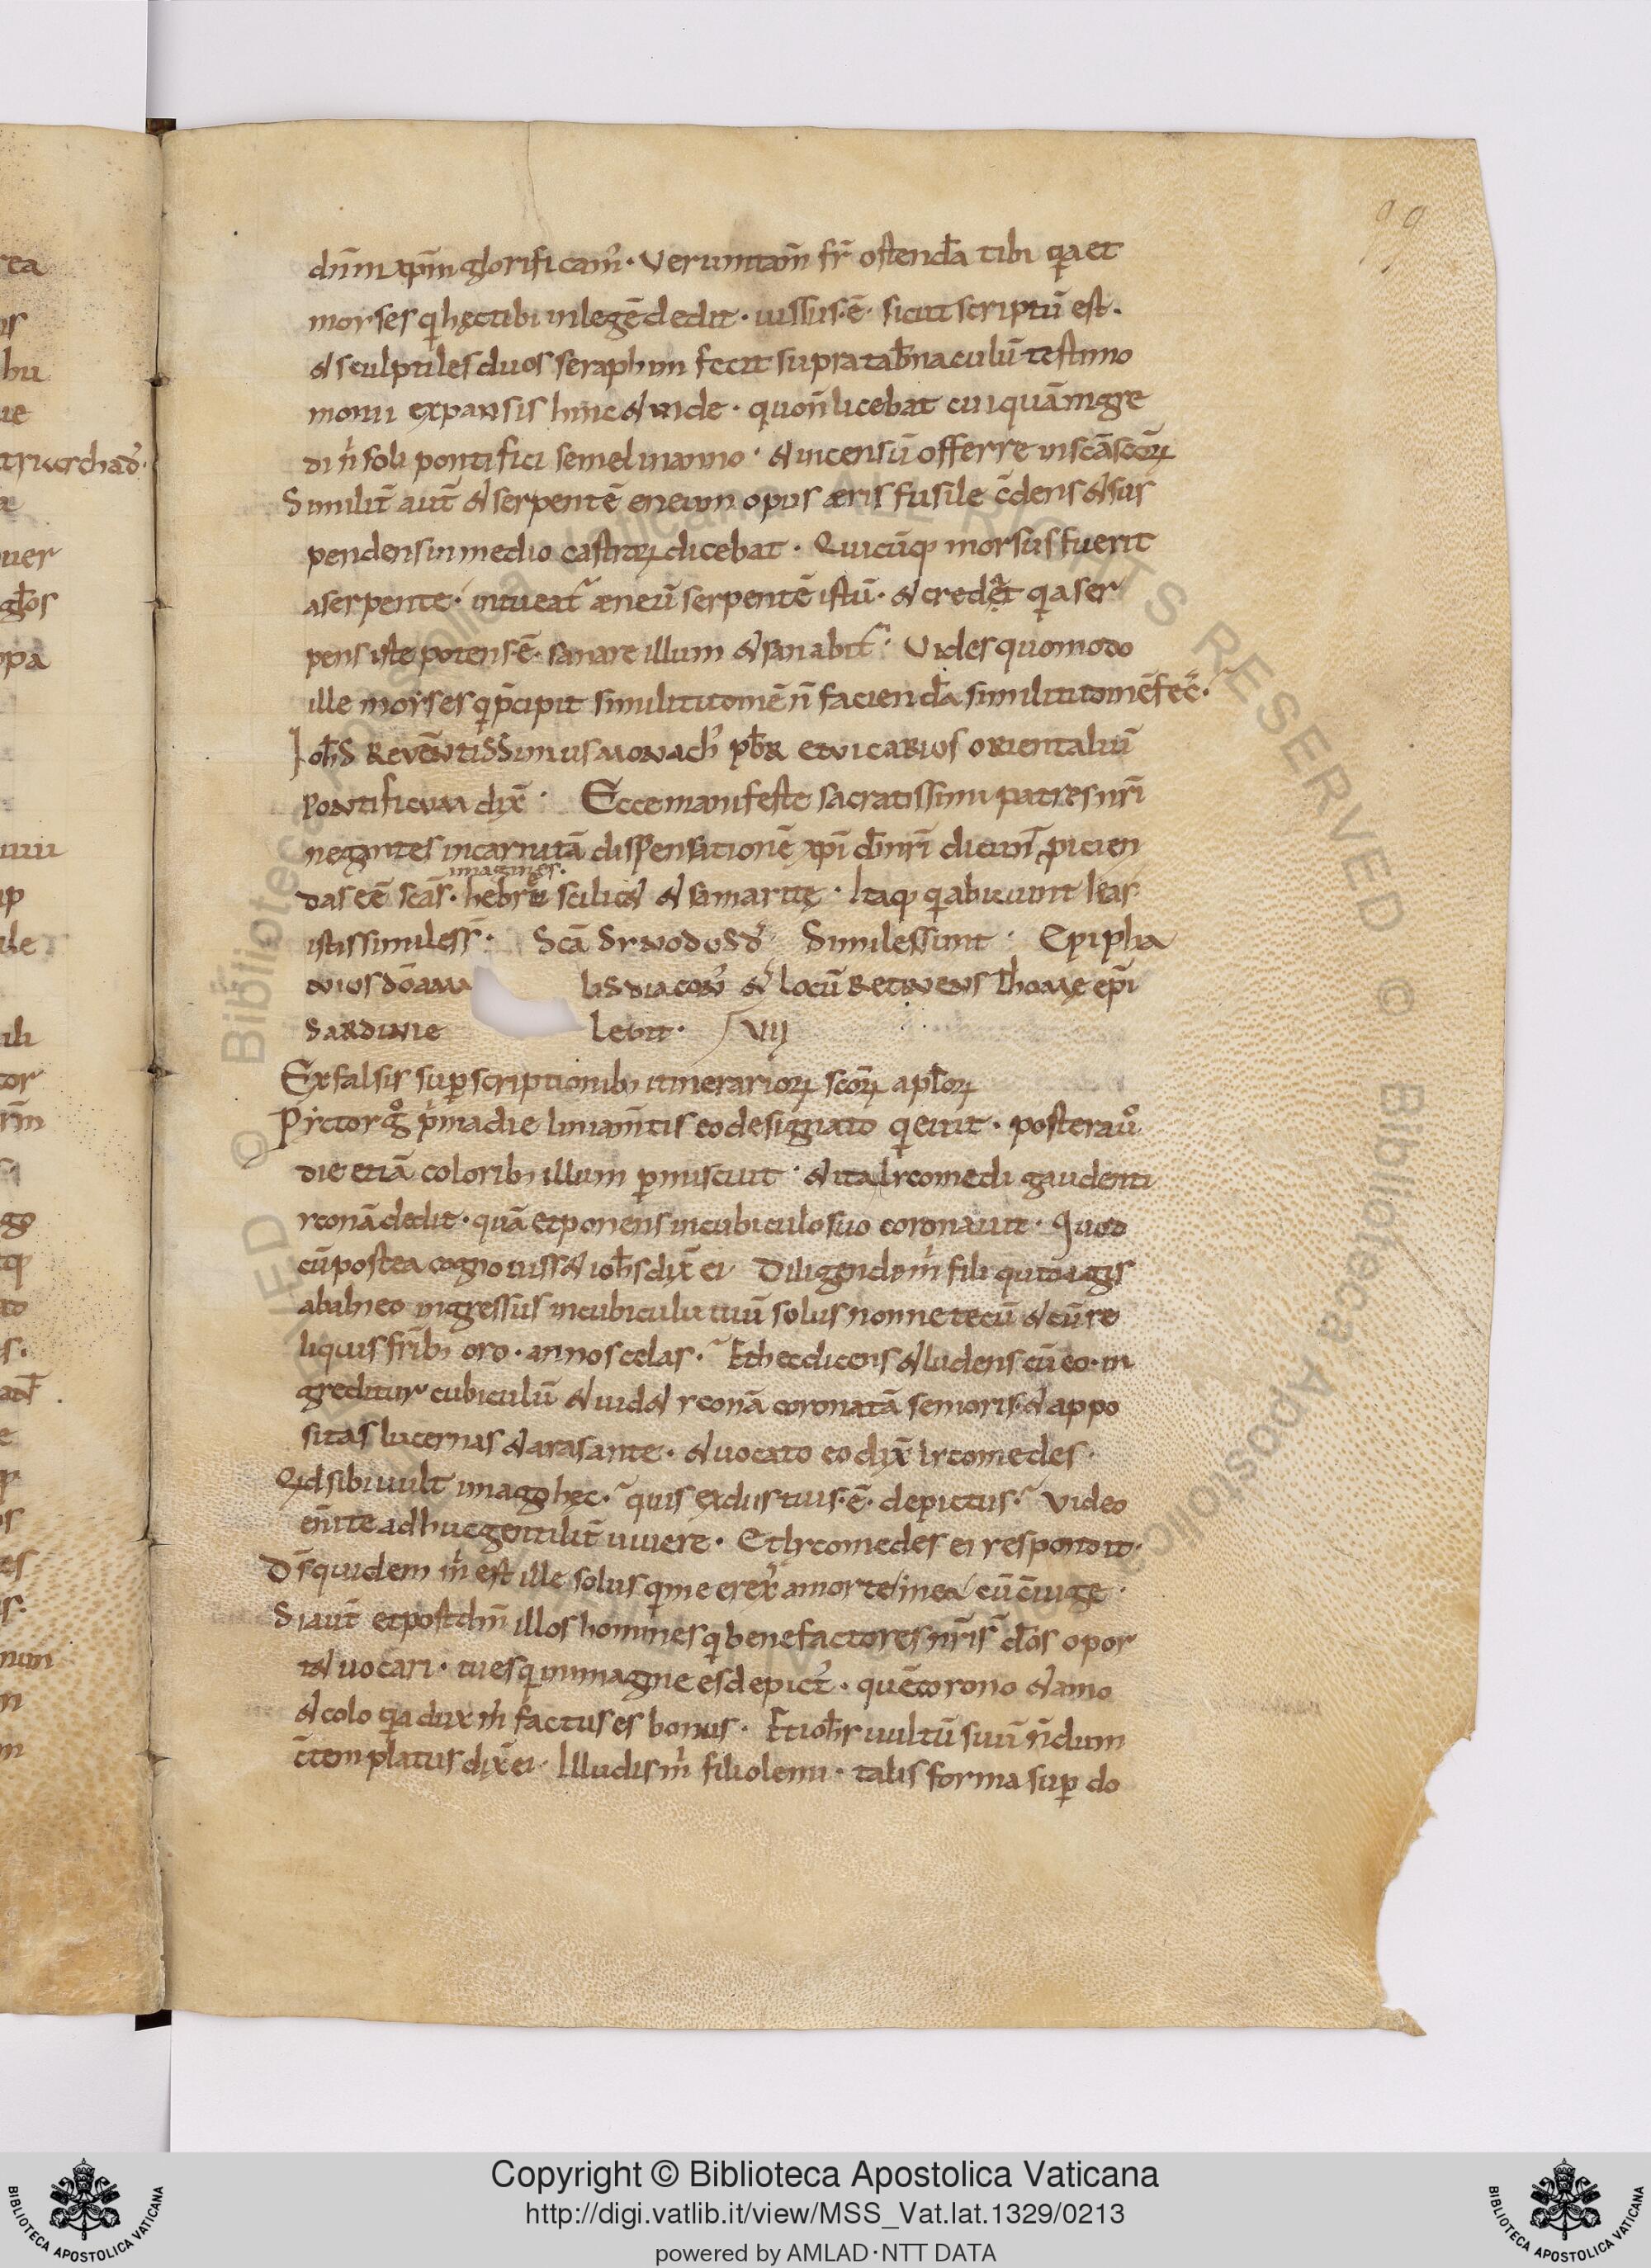 dnm xpm glorificam᾽. Veruntam̄ fr̄ ostenda᷄ tibi qa et
morses qi hęc tibi in legē dedit. iussus .ē. sicut scriptū est.
& sculptiles duos seraphim fecit supra tab̄naculū testimo
monii expansis hinc & inde. quo n̄ licebat cuiquā ingre
di n᾽ soli pontifici semel in anno. & incensū offerre in scā scōꝝ
Similit̄ aut̄ & serpentē eneum opus æris fusile c̄dens & sus
pendens in medio castroꝝ dicebat. Quicūq; morsus fuerit
a serpente. intueat᾽ æneū serpentē istū. & creder&t qa ser
pens iste potens .ē. sanare illum & sanabit᾽. Vides quomodo
ille morses qi p̄cipit similitudinē n̄ facienda᷄ similitudinē fec̄.
Ioh̄s Revēntissimus monach᾽ pb̄r et vicarius orientaliū
pontificum dix̄. Ecce manifeste sacratissimi patres nr̄i
negantes incarnatā dispensationē xpī dn̄i nr̄i dicunt̄ ꝓicien
das eē scās. imagines. hebrei scilic& & samaritę. Itaq; qi abiciunt eas
istis similes s̄. Scā synodus d᾽. Similes sunt. Epipha
nius do am lis diacon᾽ & locū retinens Thome epī
Sardinie legit. VII
Ex falsis superscriptionib; itinerarioꝝ scōꝝ aplōꝝ
Pictor g° p᾽ma die liniam̄tis eo designato qieuit. postera u°
die etiā colorib; illum permiscuit. & ita lycomedi gaudenti
yconā dedit. quā et ponens in cubiculo suo coronauit. Quod
cū postea cognouiss& ioh̄s dix̄ ei Diligende m᾽ fili quid agis
a balneo ingressus in cubiculū tuū solus nonne tecū & cū re
liquis fr̄ib; oro. an nos celas. Et hec dicens & ludens cū eo. in
greditur cubiculū & uid& yconā coronatā senioris. & appo
sitas lucernas & aras ante. & uocato eo dix̄ lycomedes.
Qid sibi uult imago hęc. quis ex diis tuis .ē. depictus. Video
en̄ te adhuc gentilit̄ uiuere. Et lycomedes ei respondit.
Ds̄ quidem m᾽ est ille solus qi me erex᾽ a morte mea cū c̄iuge.
Si aut̄ et post dm̄ illos homines qi benefactores nr̄is d̄os opor
t& uocari. tu es qi in imagine es depict᾽. quē corono & amo
& colo qia dux m᾽ factus es bonus. Et ioh̄s uultū suū n̄dum
c̄templatus dix̄ ei. Illudis m᾽ filiole mi. talis forma sup do
Copyright © Biblioteca Apostolica Vaticana
http://digi.vatlib.it/view/MSS_Vat.lat.1329/0213
powered by AMLAD·NTT DATA